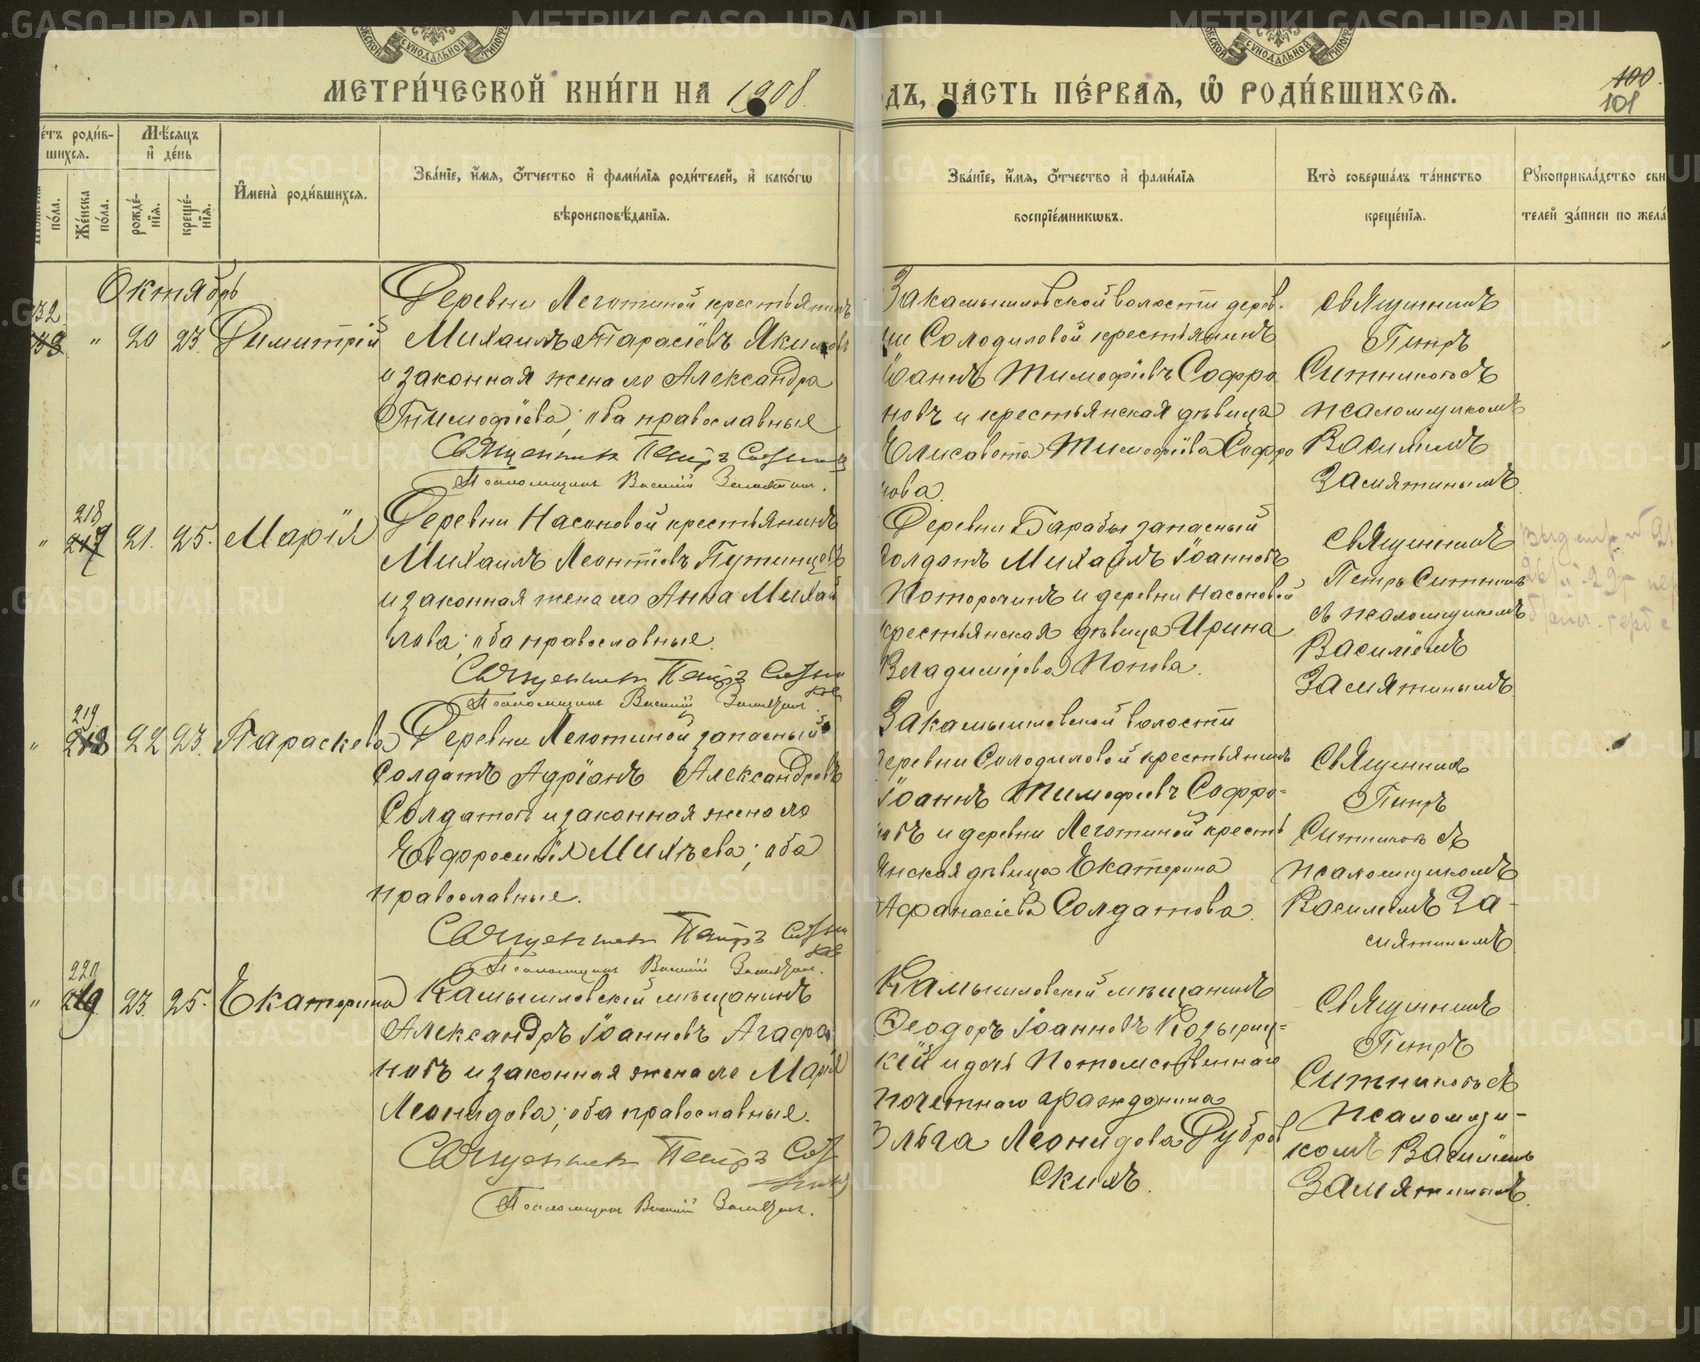 МЕТРИ́ЧЕСКОЙ КНИ́ГИ НА 1908.
ДЪ, ЧА́СТЬ ПЕ́РВАЯ, Ѿ РОДИ́ВШИХСЯ.
100
101
е́тъ роди́в-
шихся.
Мѣ́сяцъ
и҆ де́нь
по́ла.
Же́нска
по́ла.
рожде́-
нїя.
креще́-
нїя.
И҆мена̀ роди́вшихся.
Зва́нїе, и҆́мя, ѻ҆́тчество и҆ фами́лїя роди́телей, и҆ како́гѡ
вѣроисповѣ́данїя.
Зва́нїе, и҆́мя, ѻ҆́тчество и҆ фами́лїя
воспрїе́мникѡвъ.
Кто̀ соверша́лъ та́инство
креще́нїя.
Рꙋкоприкла́дство сви
телей за́писи по жела
Октябрь
232
" 20 23. Димитрій
Деревни Леготиной крестьянинъ
Михаилъ Тарасіевъ Якимовъ
и законная жена его Александра
Тимофіева; оба православные
Священникъ Петръ Ситник
Псаломщикъ Василій Замятин.
Закамышловской волости дерев-
ни Солодиловой крестьянинъ
Іоаннъ Тимофіевъ Софро
новъ и крестьянская дѣвица
Елисавета Тимофіева Софро
нова.
Священникъ
Петръ
Ситниковъ съ
псаломщикомъ
Василіемъ
Замятинымъ.
218
217
" 21. 25. Марія
Деревни Насоновой крестьянинъ
Михаилъ Леонтіевъ Путинцевъ
и законная жена его Анна Михай
лова; оба православные.
Священникъ Петръ Ситни
ков
Псаломщикъ Василій Замятин.
Деревни Барабы запасный
солдатъ Михаилъ Іоанновъ
Поторочинъ и деревни Насоновой
крестьянская дѣвица Ирина
Владимірова Попова.
Священникъ
Петръ Ситников
съ псаломщикомъ
Василіемъ
Замятинымъ
219
218
" 22 23. Параскева
Деревни Леготиной запасный
солдатъ Адріанъ Александровъ
Солдатовъ и законная жена его
Евфросинія Михѣева; оба
православные.
Священникъ Петръ Ситни
ков
Псаломщикъ Василій Замятин.
Закамышловской волости
деревни Солодиловой крестьянинъ
Іоаннъ Тимофіевъ Софро-
новъ и деревни Леготиной кресть
янская дѣвица Екатерина
Афанасіева Солдатова.
Священник
Петръ
Ситниковъ съ
псаломщикомъ
Василіемъ За-
мятинымъ
220
219
" 23. 25. Екатерина
Камышловскій мѣщанинъ
Александръ Іоанновъ Агафо
новъ и законная жена его Марія
Леонидова; оба православные.
Священникъ Петръ Сит
ников
Псаломщикъ Василій Замятин.
Камышловскій мѣщанинъ
Ѳеодоръ Іоанновъ Козыриц-
кій и дочь Потомственнаго
почетнаго гражданина
Ольга Леонидова Дубров
скихъ.
Священникъ
Петръ
Ситниковъ съ
псаломщи-
комъ Василіемъ
Замятинымъ.
METRIKI.GASO-URAL.RU